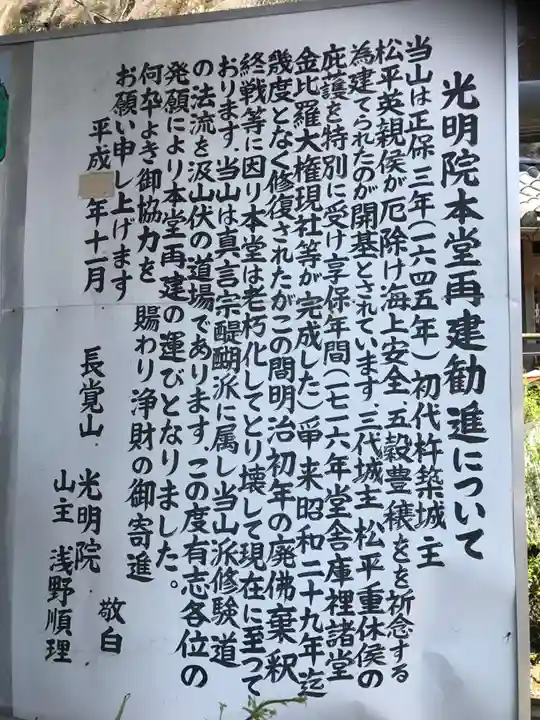 光明院本堂再建勧進について
当山は正保三年(一六四五年)初代杵築城主
松平英親侯が厄除け海上安全五穀豊穣をを祈念する
為建てられたのが開基とされています。三代城主松平重休侯の
庇護を特別に受け享保年間(一七一六年堂舎庫裡諸堂
金比羅大権現社等が完成した)爾来昭和二十九年迄
幾度となく修復されたがこの間明治初年の廃佛棄釈
終戦等に因り本堂は老朽化してとり壊して現在に至って
おります。当山は真言宗醍醐派に属し当山派修験道
の法流を汲山伏の道場であります。この度有志各位の
発願により本堂再建の運びとなりました。
何卒よき御協力を 賜わり浄財の御寄進
お願い申し上げます
平成 年十一月
長覚山 光明院 敬白
山主 浅野順理